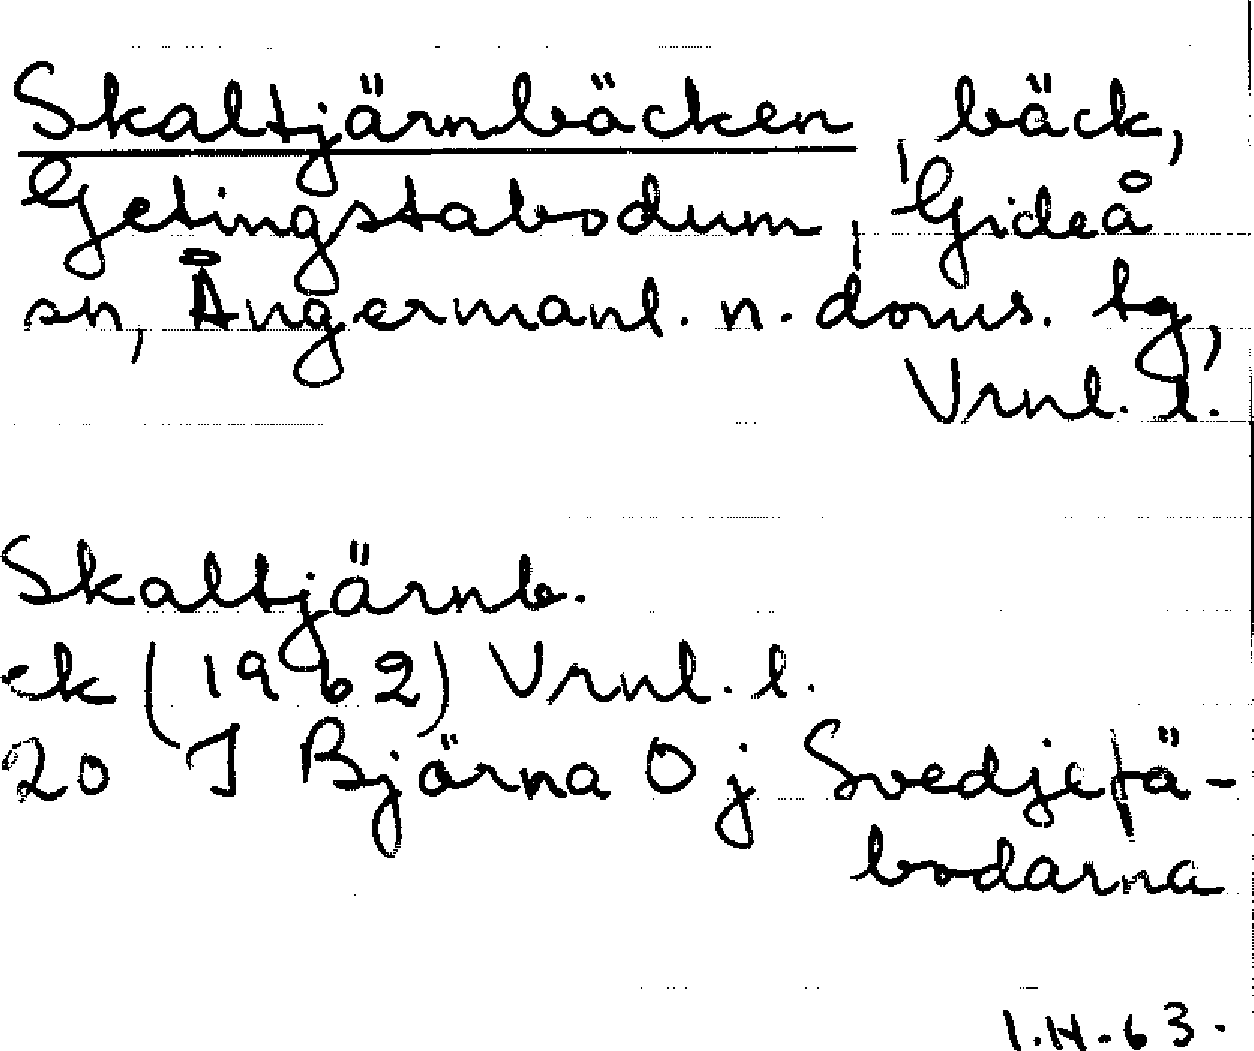 Skaltjärnbäcken, bäck,
Getingstabodum, Gideå
sn, Ångermanl. n. doms. tg,
Vrnl. l.
Skaltjärnb.
ek (1962) Vrnl. l.
20 I Björna 0 j Svedjefä-
bodarna
I.H.-63.